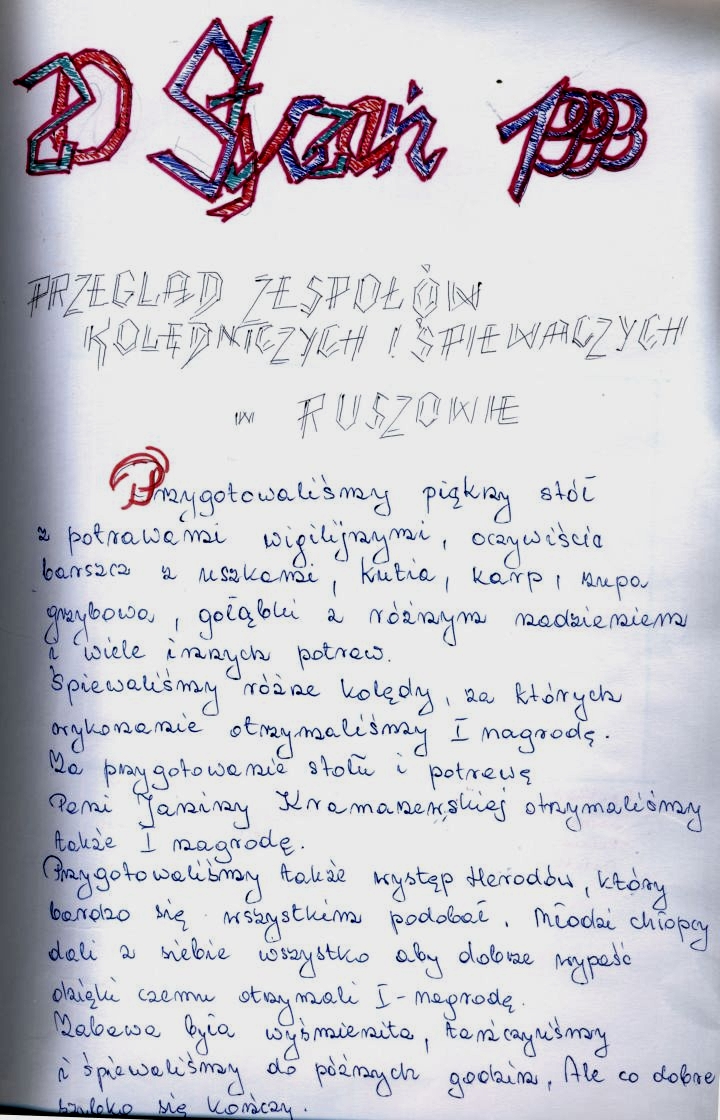 20 Styczań 1993
PRZEGLĄD ZESPOŁÓW
KOLĘDNICZYCH I ŚPIEWACZYCH
w RUSZOWIE
Przygotowaliśmy piękny stół
z potrawami wigilijnymi, oczywiście
barszcz z uszkami, kutia, karp, zupa
grzybowa, gołąbki z różnym nadzieniem
i wiele innych potraw.
Śpiewaliśmy różne kolędy, za których
wykonanie otrzymaliśmy I nagrodę.
Za przygotowanie stołu i potrawę
Pani Janiny Kramarewskiej otrzymaliśmy
także I nagrodę.
Przygotowaliśmy także występ Herodów, który
bardzo się wszystkim podobał. Młodzi chłopcy
dali z siebie wszystko aby dobrze wypaść
dzięki czemu otrzymali I-nagrodę.
Zabawa była wyśmienita, tańczyliśmy
i śpiewaliśmy do późnych godzin, Ale co dobre
szybko się kończy.